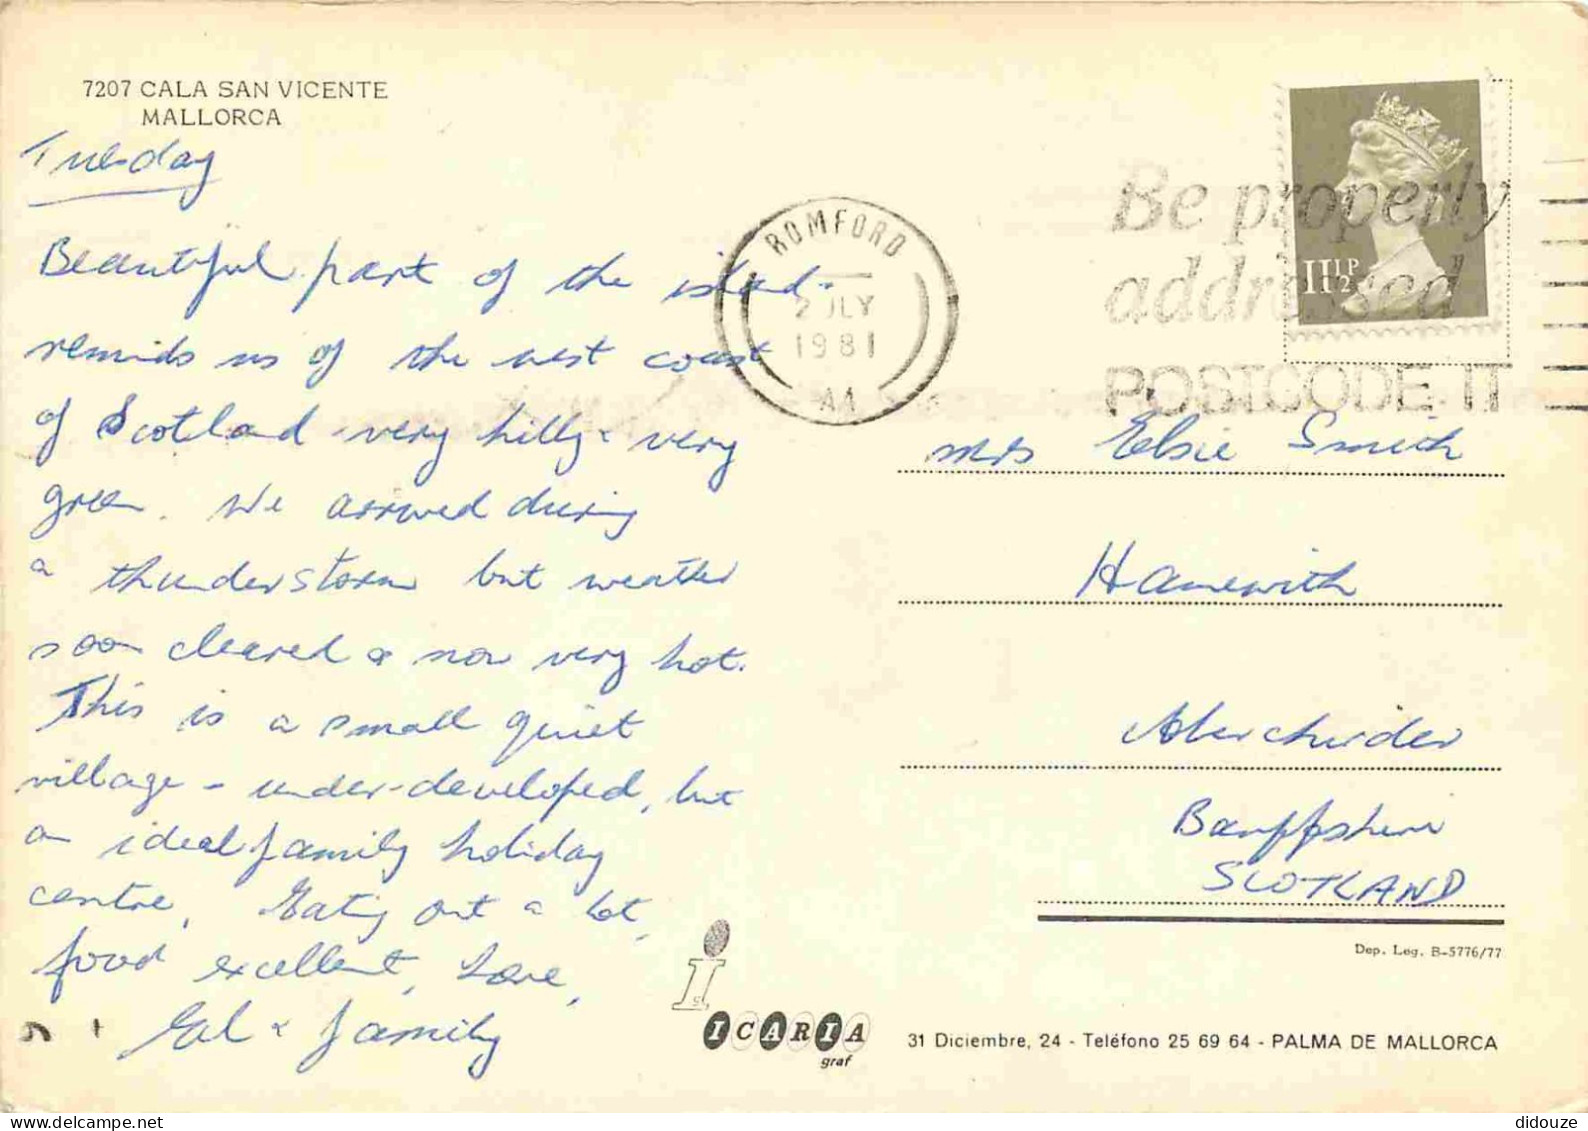 7207 CALA SAN VICENTE
MALLORCA
Tuesday
Beautiful part of the island -
reminds us of the west coast
of Scotland very hilly & very
green. We arrived during
a thunderstorm but weather
soon cleared & now very hot.
This is a small quiet
village - under-developed, but
an ideal family holiday
centre, Eating out a lot,
food excellent, Love,
& family
ROMFORD
2 JLY
1981
Be properly
addressed
POSTCODE IT
11½P
Mrs Elsie Smith
Aberchirder
Banffshire
SCOTLAND
Dep. Leg. B-5776/77
ICARIA
graf
31 Diciembre, 24 - Teléfono 25 69 64 - PALMA DE MALLORCA
delcampe.net
didouze